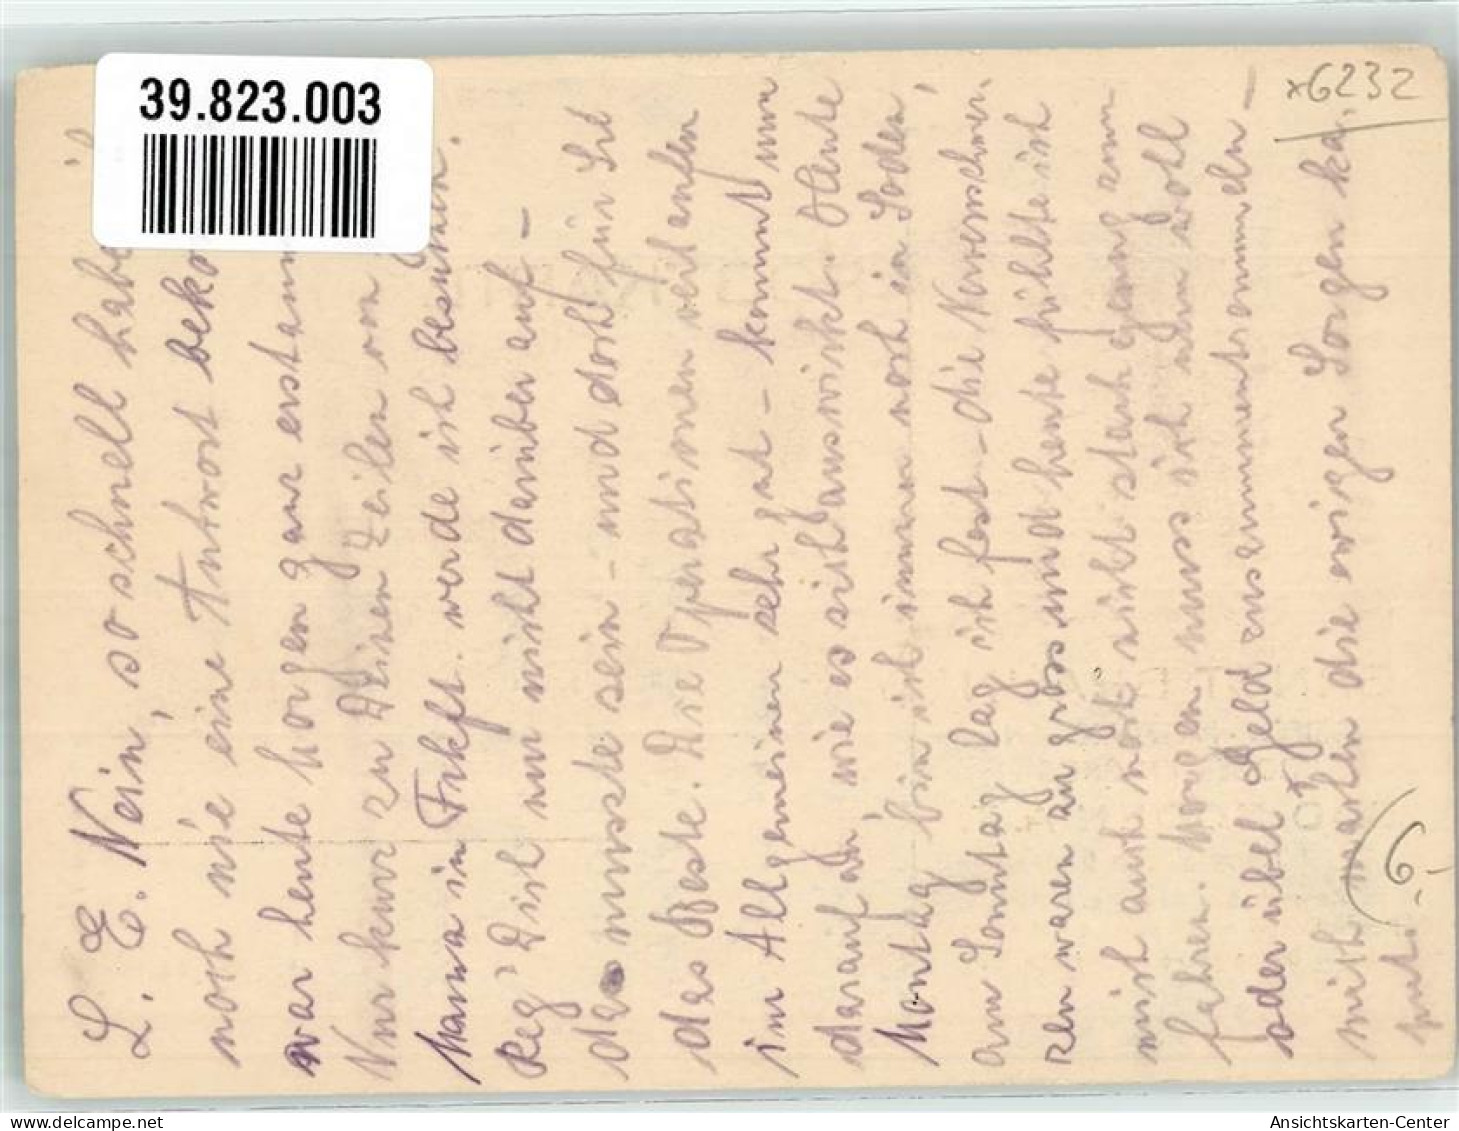 39.823.003
x6232
L. E. Nein, so schnell habe ich
noch nie eine Antwort beko
war heute morgen ganz erstaun
Nur kurz zu Deinen Zeilen von
Mama in Frkft. werde ich besuchen.
Reg' Dich nur nicht darüber auf –
das musste sein – und doch für Sie
das Beste. Die Operationen verlaufen
im Allgemeinen sehr gut – kommt nun
darauf an, wie es sich auswirkt. Heute
Montag bin ich immer noch in Soden,
am Sonntag lag ich fest – die Schmer-
zen waren zu gross und heute fühlte ich
mich auch noch nicht stark genug zum
fahren. Morgen muss ich nun wohl
oder übel Geld zusammentrommeln –
mich machen die ewigen Sorgen ka-
put.
6.-
delcampe.net
Ansichtskarten-Center